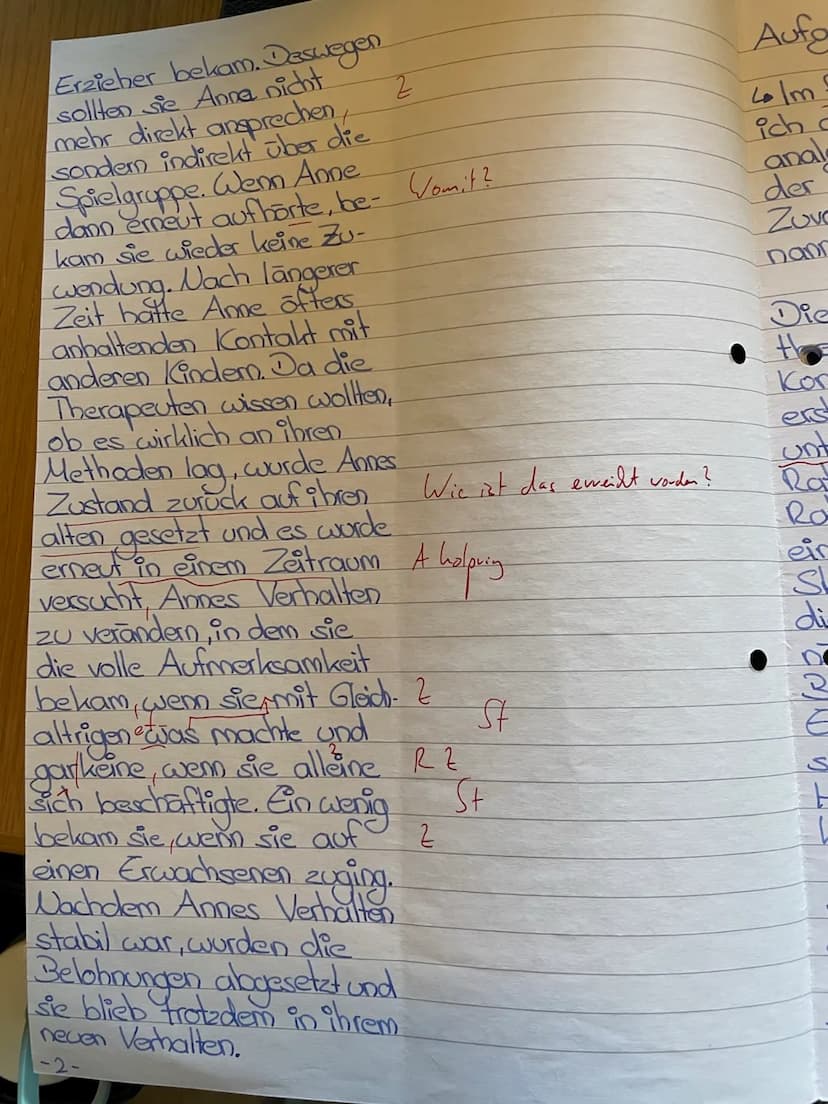 Erzieher bekam. Deswegen
sollten sie Anne nicht
mehr direkt ansprechen, Z
sondern indirekt über die
Spielgruppe. Wenn Anne
dann erneut aufhörte, be- Womit?
kam sie wieder keine Zu-
wendung. Nach längerer
Zeit hatte Anne öfters
anhaltenden Kontakt mit
anderen Kindern. Da die
Therapeuten wissen wollten,
ob es wirklich an ihren
Methoden lag, wurde Annes
Zustand zurück auf ihren Wie ist das erreicht worden?
alten gesetzt und es wurde
erneut in einem Zeitraum A holprig
versucht, Annes Verhalten
zu verändern, in dem sie
die volle Aufmerksamkeit
bekam, wenn sie mit Gleich- Z
altrigen etwas machte und St
gar keine, wenn sie alleine R Z
sich beschäftigte. Ein wenig St
bekam sie, wenn sie auf Z
einen Erwachsenen zuging.
Nachdem Annes Verhalten
stabil war, wurden die
Belohnungen abgesetzt und
sie blieb trotzdem in ihrem
neuen Verhalten.
-2-
Aufg
↳ Im
ich
anal
der
Zuv
nan
Die
Kor
erst
unt
Ra
Ro
ein
S
di
E
s